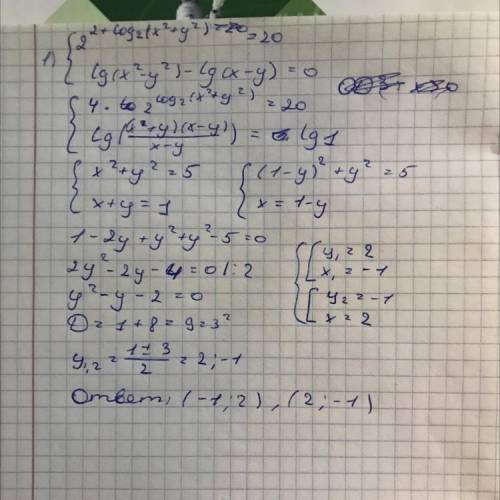 1) { 2^(2+log₂(x²+y²)) = 20
lg(x²-y²) - lg(x-y) = 0
{ 4 · 2^(log₂(x²+y²)) = 20
lg((x+y)(x-y)/(x-y)) = lg 1
{ x²+y² = 5 { (1-y)²+y² = 5
x+y = 1 x = 1-y
1 - 2y + y² + y² - 5 = 0
2y² - 2y - 4 = 0 | : 2
y² - y - 2 = 0
D = 1 + 8 = 9 = 3²
y₁,₂ = (1 ± 3)/2 = 2; -1
{ [ y₁ = 2
x₁ = -1
[ y₂ = -1
x = 2
Ответ: (-1; 2), (2; -1)